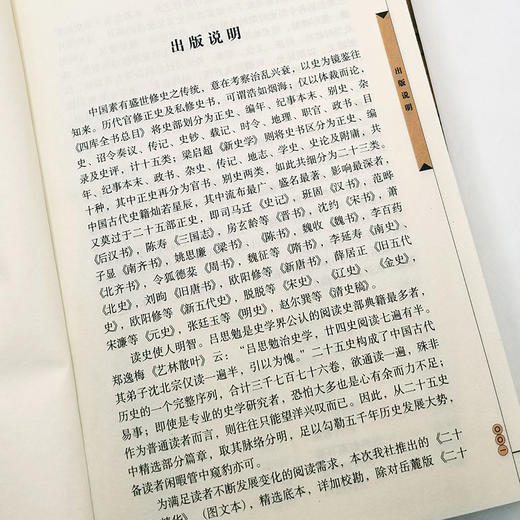 出版说明
中国素有盛世修史之传统，意在考察治乱兴衰，以史为镜鉴往
知来。历代官修正史及私修史书，可谓浩如烟海；仅以体裁而论，
《四库全书总目》将史部划分为正史、编年、纪事本末、别史、杂
史、诏令奏议、传记、史钞、载记、时令、地理、职官、政书、目
录及史评，计十五类；梁启超《新史学》则将史书区分为正史、编
年、纪事本末、政书、杂史、传记、地志、学史、史论及附庸，共
十种，其中正史再分为官书、别史两类，如此共细分为二十三类。
中国古代史籍灿若星辰，其中流布最广、盛名最著、影响最深者，
又莫过于二十五部正史，即司马迁《史记》、班固《汉书》、范晔
《后汉书》、陈寿《三国志》、房玄龄等《晋书》、沈约《宋书》、萧
子显《南齐书》、姚思廉《梁书》、《陈书》、魏收《魏书》、李百药
《北齐书》、令狐德棻《周书》、魏征等《隋书》、李延寿《南史》、
《北史》、刘昫《旧唐书》、欧阳修等《新唐书》、薛居正《旧五代
史》、欧阳修等《新五代史》、脱脱等《宋史》、《辽史》、《金史》、
宋濂等《元史》、张廷玉等《明史》、赵尔巽等《清史稿》。
读史使人明智。吕思勉是史学界公认的阅读史部典籍最多者，
郑逸梅《艺林散叶》云：“吕思勉治史学，廿四史阅读七遍有半。
其弟子沈北宗仅读一遍半，引以为愧。”二十五史构成了中国古代
历史的一个完整序列，合计三千七百七十六卷，欲通读一遍，殊非
易事；即使是专业的史学研究者，恐怕大多也是心有余而力不足；
作为普通读者而言，则往往只能望洋兴叹而已。因此，从二十五史
中精选部分篇章，取其脉络分明，足以勾勒五千年历史发展大势，
备读者闲暇管中窥豹亦可。
为满足读者不断发展变化的阅读需求，本次我社推出的《二十
精华》（图文本），精选底本，详加校勘，除对岳麓版《二十
出版说明
〇〇一